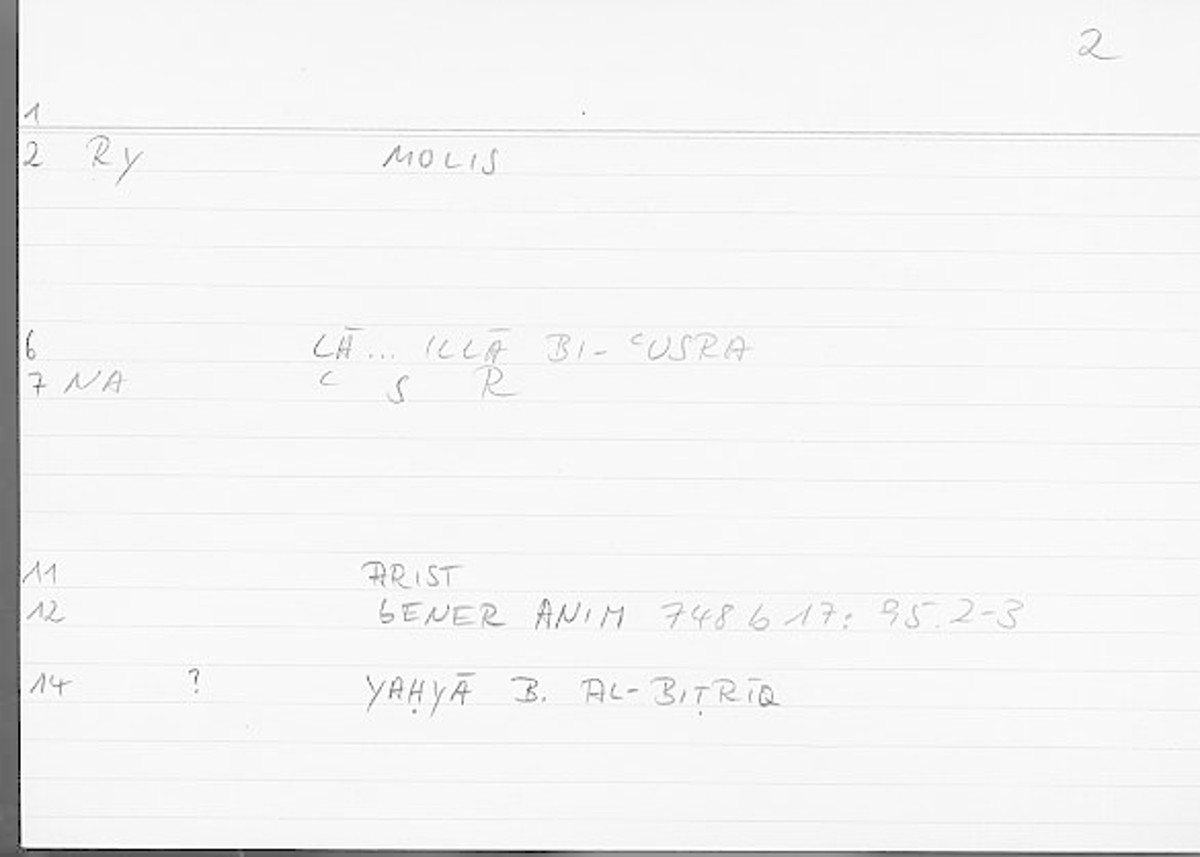 2
1
2 RY MOLIS
6 LĀ... ILLĀ BI-ʿUSRA
7 NA ʿ S R
11 ARIST
12 GENER ANIM 748 b 17: 95.2-3
14 ? YAḤYĀ B. AL-BIṬRĪQ